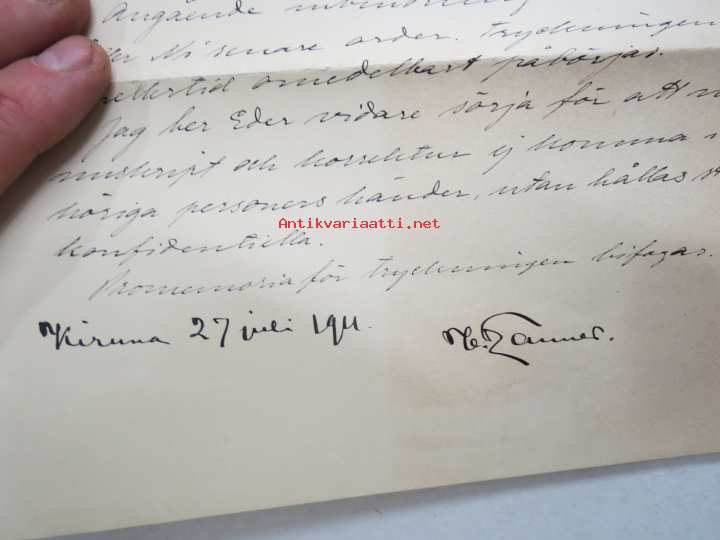 Angående
Ni senare order. Tryckningen
emellertid omedelbart påbörjas.
Jag ber Eder vidare sörja för att
manuskript och korrektur ej komma
höriga personers händer, utan hållas
konfidentiella.
Promemoria för tryckningen bifogas.
Antikvariaatti.net
Kiruna 27 juli 1911.
V. Tanner.